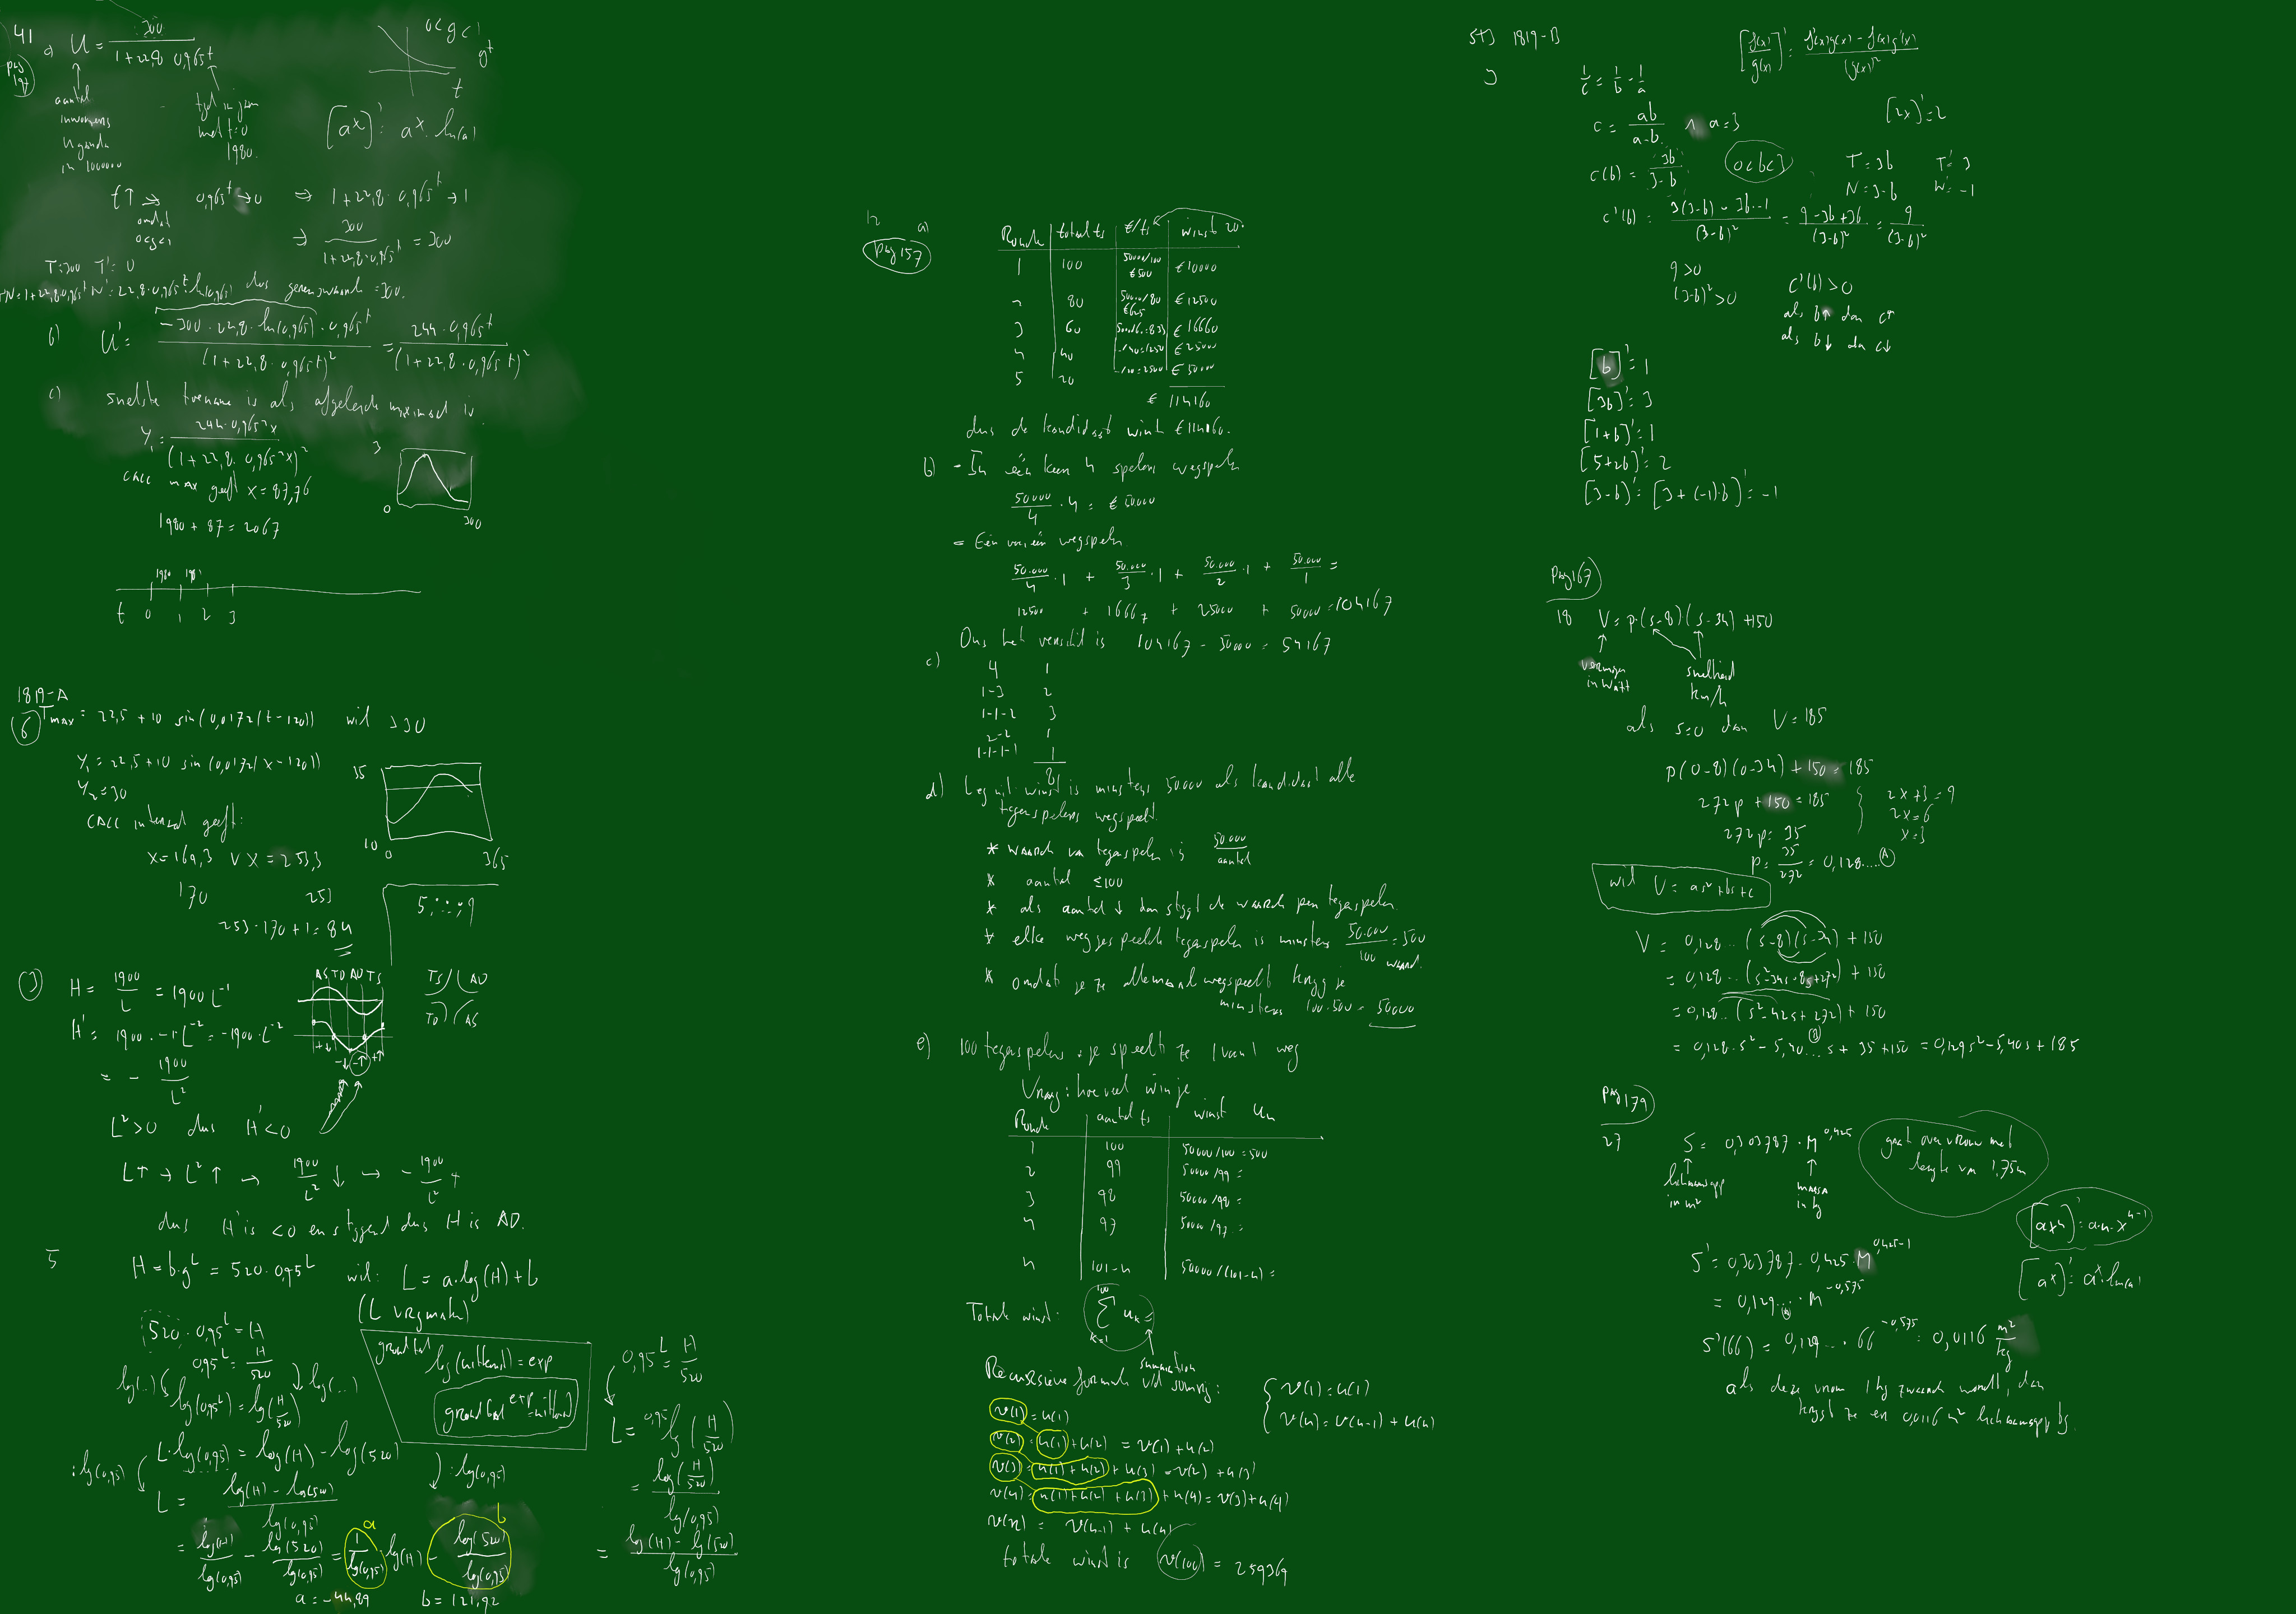 41
pag 197
a) U = 300 / (1+22,8·0,965^t)
0<g<1
g^t
t
aantal inwoners Uganda in 1000000
tijd in jaren met t=0 1980.
[a^x]' = a^x · ln(a)
t↑ ⇒ 0,965^t → 0 ⇒ 1+22,8·0,965^t → 1
omdat 0<g<1
⇒ 300 / (1+22,8·0,965^t) = 300
T=300 T'=0
N=1+22,8·0,965^t N'=22,8·0,965^t·ln(0,965) dus grenswaarde = 300.
b) U' = -300·22,8·ln(0,965)·0,965^t / (1+22,8·0,965^t)^2 = 244·0,965^t / (1+22,8·0,965^t)^2
c) snelste toename is als afgeleide maximaal is.
Y1 = 244·0,965^x / (1+22,8·0,965^x)^2
3
0
300
CALC max geeft x=87,76
1980 + 87 = 2067
1980
t 0 1 2 3
1819-A
6 Tmax = 22,5 + 10 sin(0,0172(t-120)) wil >30
Y1 = 22,5+10 sin(0,0172(x-120))
Y2=30
35
10
0
365
CALC intersect geeft:
x=169,3 ∨ x=253,3
170 253
253-170+1 = 84
5;...;9
3 H = 1900/L = 1900 L^-1
AS TD AD TS
TS AD
TD AS
H' = 1900·-1·L^-2 = -1900·L^-2
= - 1900/L²
L²>0 dus H'<0
L↑ → L²↑ → 1900/L² ↓ → -1900/L² ↑
dus H' is <0 en stijgend dus H is AD.
5 H = b·g^L = 520·0,95^L wil: L = a·log(H)+b
(L vrijmaken)
520·0,95^L = H
0,95^L = H/520
log(...) log(...)
log(0,95^L) = log(H/520)
grondtal log(uitkomst) = exp
grondtal^exp = uitkomst
L·log(0,95) = log(H) - log(520)
:log(0,95) :log(0,95)
L = (log(H) - log(520)) / log(0,95)
= log(H)/log(0,95) - log(520)/log(0,95) = 1/log(0,95) · log(H) - log(520)/log(0,95)
a b
a = -44,89 b = 121,92
0,95^L = H/520
L = 0,95log(H/520)
= log(H/520) / log(0,95)
= (log(H) - log(520)) / log(0,95)
12 a)
pag 157
Ronde | totaal ts | €/ts | winst 20·
1 | 100 | 50000/100 €500 | €10000
2 | 80 | 50000/80 €625 | €12500
3 | 60 | 50000/60=833 | €16660
4 | 40 | /40=1250 | €25000
5 | 20 | /20=2500 | €50000
€ 114160
dus de kandidaat wint €114160.
b) - In één keer 4 spelers wegspelen
50000/4 · 4 = €50000
= Eén voor één wegspelen
50.000/4 · 1 + 50.000/3 · 1 + 50.000/2 · 1 + 50.000/1 =
12500 + 16667 + 25000 + 50000 = 104167
Dus het verschil is 104167 - 50000 = 54167
c) 4 1
1-3 2
1-1-2 3
2-2 1
1-1-1-1 1
8
d) Leg uit winst is minstens 50000 als kandidaat alle tegenspelers wegspeelt.
* waarde van tegenspeler is 50.000/aantal
* aantal ≤100
* als aantal ↓ dan stijgt de waarde per tegenspeler.
* elke weggespeelde tegenspeler is minstens 50.000/100 = 500 waard.
* omdat je ze allemaal wegspeelt krijg je minstens 100·500 = 50000
e) 100 tegenspelers je speelt ze 1 voor 1 weg
Vraag: hoeveel win je
Ronde | aantal ts | winst Un
1 | 100 | 50000/100 = 500
2 | 99 | 50000/99 =
3 | 98 | 50000/98 =
4 | 97 | 50000/97 =
n | 101-n | 50000/(101-n) =
Totale winst: 100 Σ k=1 uk =
summation
Recursieve formule v/d somrij:
v(1) = u(1)
v(n) = v(n-1) + u(n)
v(1) = u(1)
v(2) = u(1) + u(2) = v(1) + u(2)
v(3) = u(1) + u(2) + u(3) = v(2) + u(3)
v(4) = u(1) + u(2) + u(3) + u(4) = v(3) + u(4)
v(n) = v(n-1) + u(n)
totale winst is v(100) = 259369
1819-B
3
[f(x)/g(x)]' = (f'(x)g(x) - f(x)g'(x)) / (g(x))²
1/c = 1/b - 1/a
c = ab/(a-b) ∧ a=3
[2x]' = 2
c(b) = 3b/(3-b)
0<b<3
T=3b T'=3
N=3-b N'=-1
c'(b) = (3(3-b) - 3b·-1)/(3-b)² = (9-3b+3b)/(3-b)² = 9/(3-b)²
9>0
(3-b)²>0
c'(b)>0
als b↑ dan c↑
als b↓ dan c↓
[b]' = 1
[3b]' = 3
[1+b]' = 1
[5+2b]' = 2
[3-b]' = [3+(-1)·b]' = -1
pag 167
18 V = p·(s-8)(s-34)+150
vermogen in Watt
snelheid km/h
als s=0 dan V=185
p(0-8)(0-34)+150=185
272p+150=185
272p=35
p = 35/272 = 0,128.... (A)
2x+3=9
2x=6
x=3
wil V = as²+bs+c
V = 0,128..·(s-8)(s-34)+150
= 0,128..·(s²-34s-8s+272)+150
= 0,128..·(s²-42s+272)+150
= 0,128·s² - 5,40...s + 35 + 150 = 0,129s² - 5,40s + 185
(B)
pag 179
27 S = 0,303787·M^0,425
gaat over vrouw met lengte van 1,75m
lichaamsopp in m²
massa in kg
[ax^n]' = a·n·x^(n-1)
S' = 0,303787·0,425·M^(0,425-1)
[a^x]' = a^x·ln(a)
= 0,129...·M^-0,575
S'(66) = 0,129...·66^-0,575 = 0,0116 m²/kg
als deze vrouw 1 kg zwaarder wordt, dan krijgt ze er 0,0116 m² lichaamsopp bij.